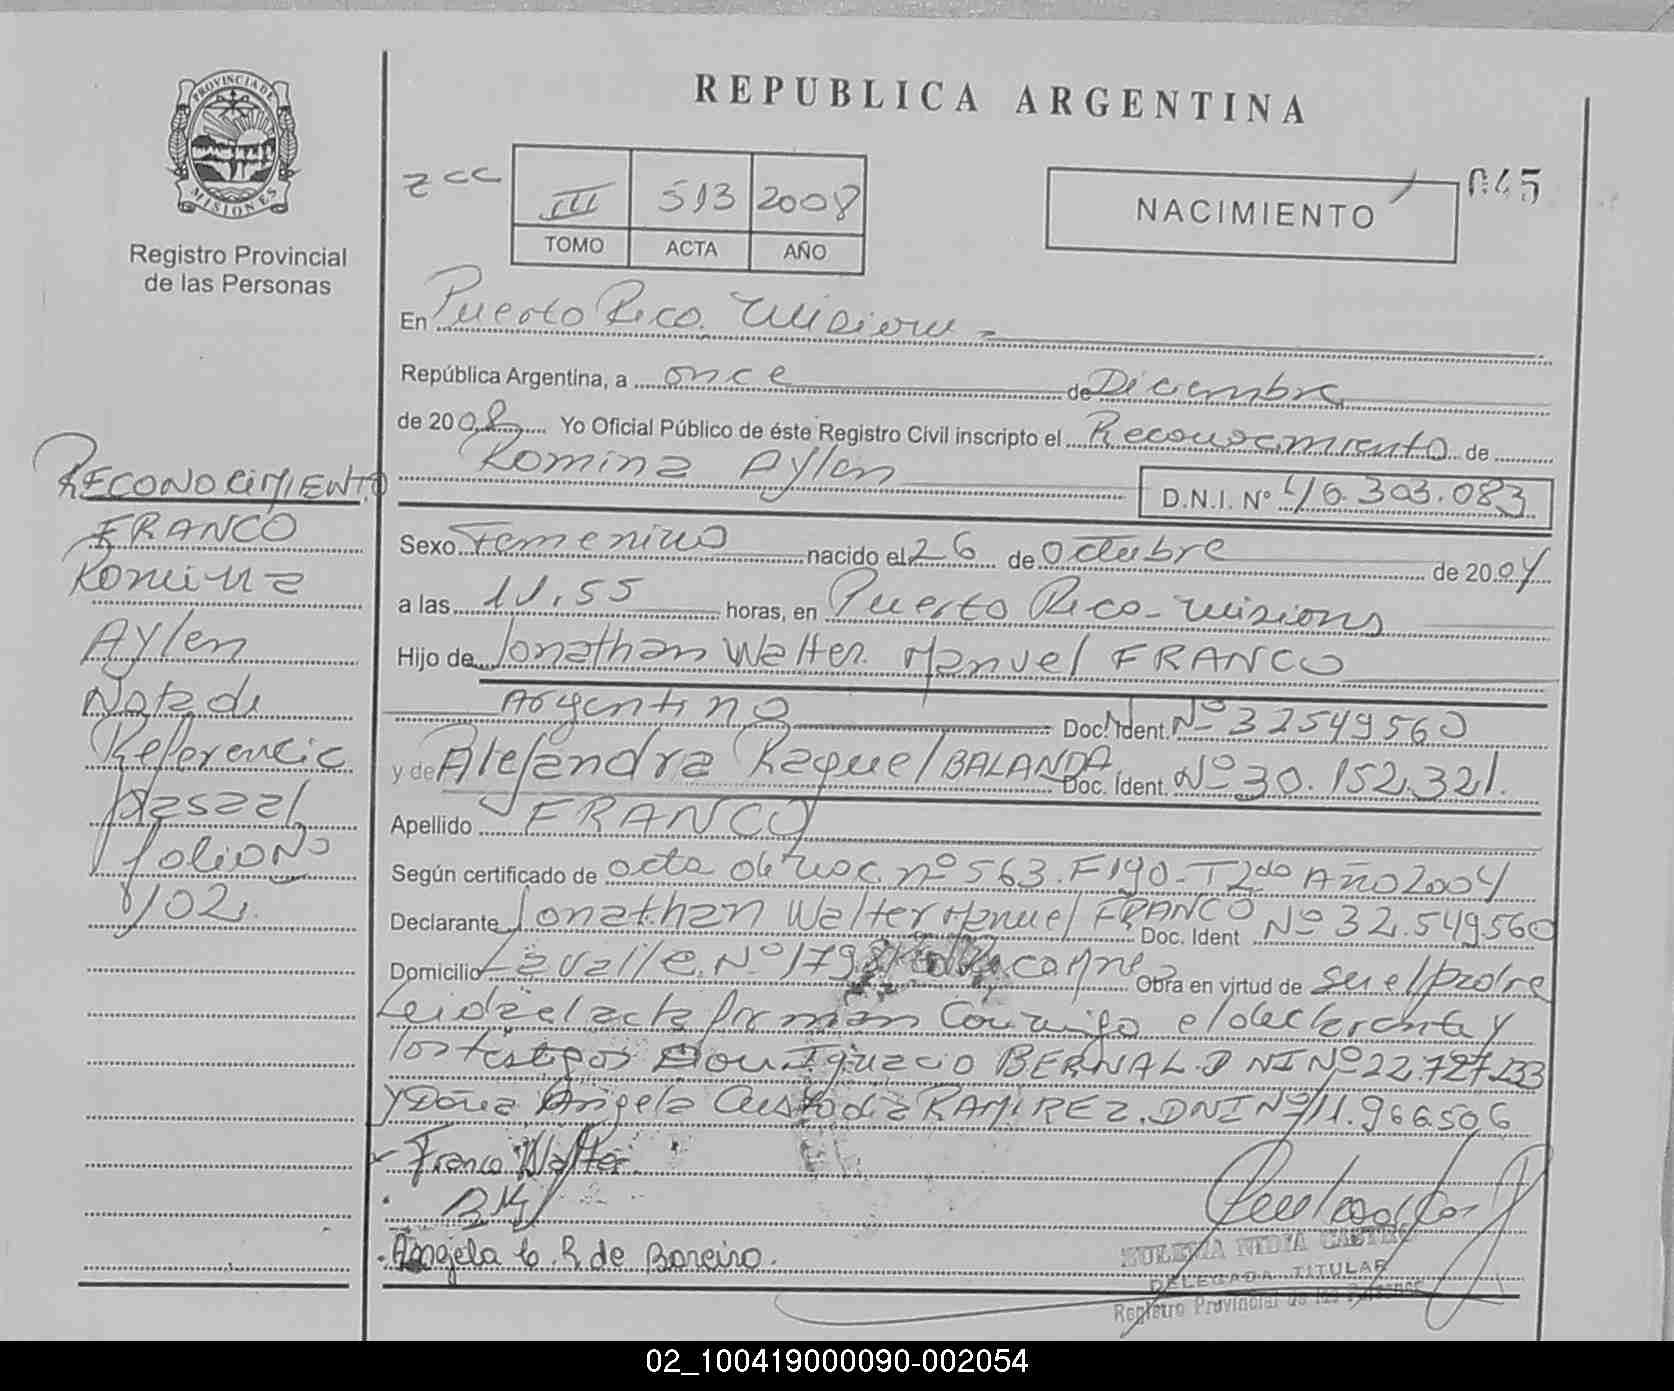 PROVINCIA DE
MISIONES
Registro Provincial
de las Personas
REPUBLICA ARGENTINA
III 513 2008
TOMO ACTA AÑO
NACIMIENTO
045
En Puerto Rico. Misiones
República Argentina, a once de Diciembre
de 2008 Yo Oficial Público de éste Registro Civil inscripto el Reconocimiento de
Romina Aylen D.N.I. Nº 46.303.083
Sexo Femenino nacido el 26 de Octubre de 2004
a las 11.55 horas, en Puerto Rico - Misiones
Hijo de Jonathan Walter Manuel FRANCO
Argentino Doc. Ident. Nº 32549560
y de Alejandra Raquel BALANDA Doc. Ident. Nº 30.152.321.
Apellido FRANCO
Según certificado de acta de nac. nº 563. F190. T2do Año 2004
Declarante Jonathan Walter Manuel FRANCO Doc. Ident Nº 32.549560
Domicilio Lavalle Nº 1798 Obra en virtud de ser el padre
Leida el acta firman conmigo el declarante y
los testigos Don Ignacio BERNAL DNI Nº 22.727.133
y Doña Angela Custodia RAMIREZ. DNI Nº 11.966506
Franco Walter
Angela C. R de Boreiro.
ZULEMA NIDIA CASTRO
DELEGADA TITULAR
Registro Provincial de las Personas
RECONOCIMIENTO
FRANCO
Romina
Aylen
Nota de
Referencia
pasa al
folio Nº
102.
02_100419000090-002054